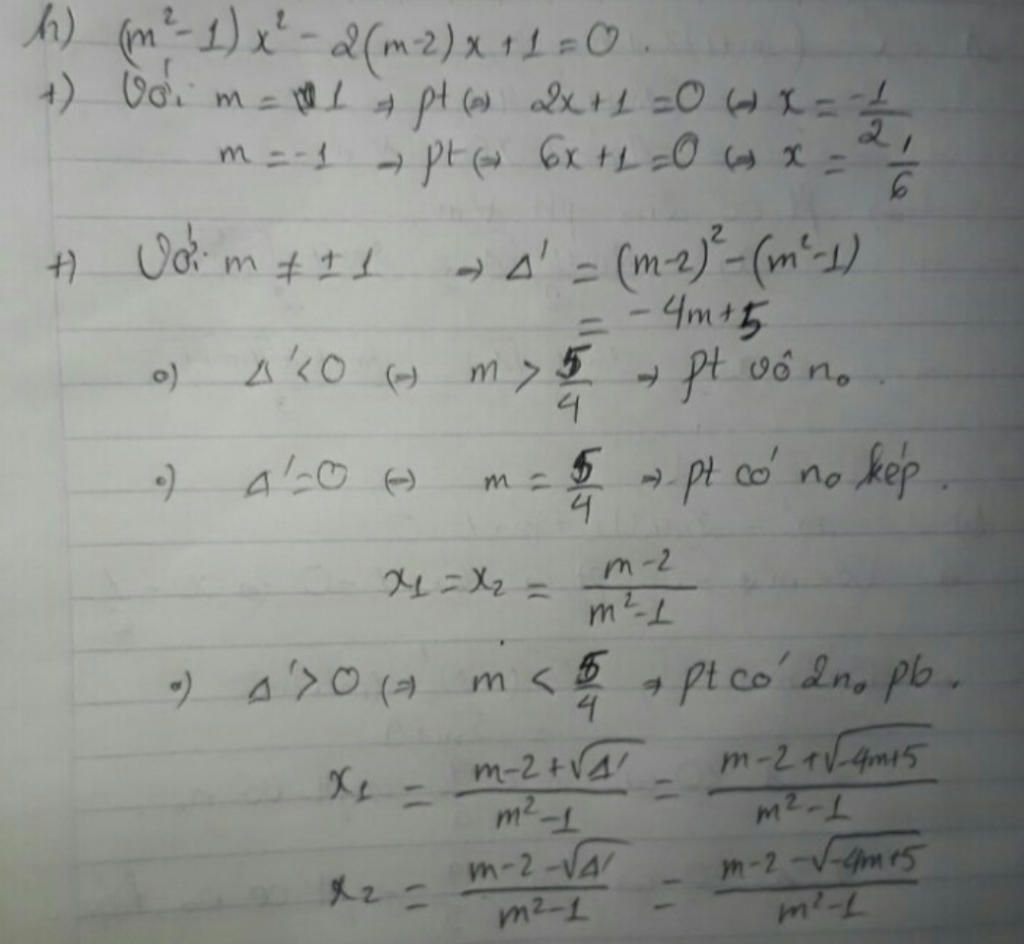 h) (m²-1)x² - 2(m-2)x + 1 = 0.
+) Với m = 1 ⇒ pt ⇔ 2x + 1 = 0 ⇔ x = -1/2
m = -1 ⇒ pt ⇔ 6x + 1 = 0 ⇔ x = 1/6
+) Với m ≠ ±1 ⇒ Δ' = (m-2)² - (m²-1)
= -4m + 5
o) Δ' < 0 ⇔ m > 5/4 ⇒ pt vô no.
o) Δ' = 0 ⇔ m = 5/4 ⇒ pt có no kép.
x₁ = x₂ = (m-2)/(m²-1)
o) Δ' > 0 ⇔ m < 5/4 ⇒ pt có 2no pb.
x₁ = (m-2+√Δ')/(m²-1) = (m-2+√(-4m+5))/(m²-1)
x₂ = (m-2-√Δ')/(m²-1) = (m-2-√(-4m+5))/(m²-1)